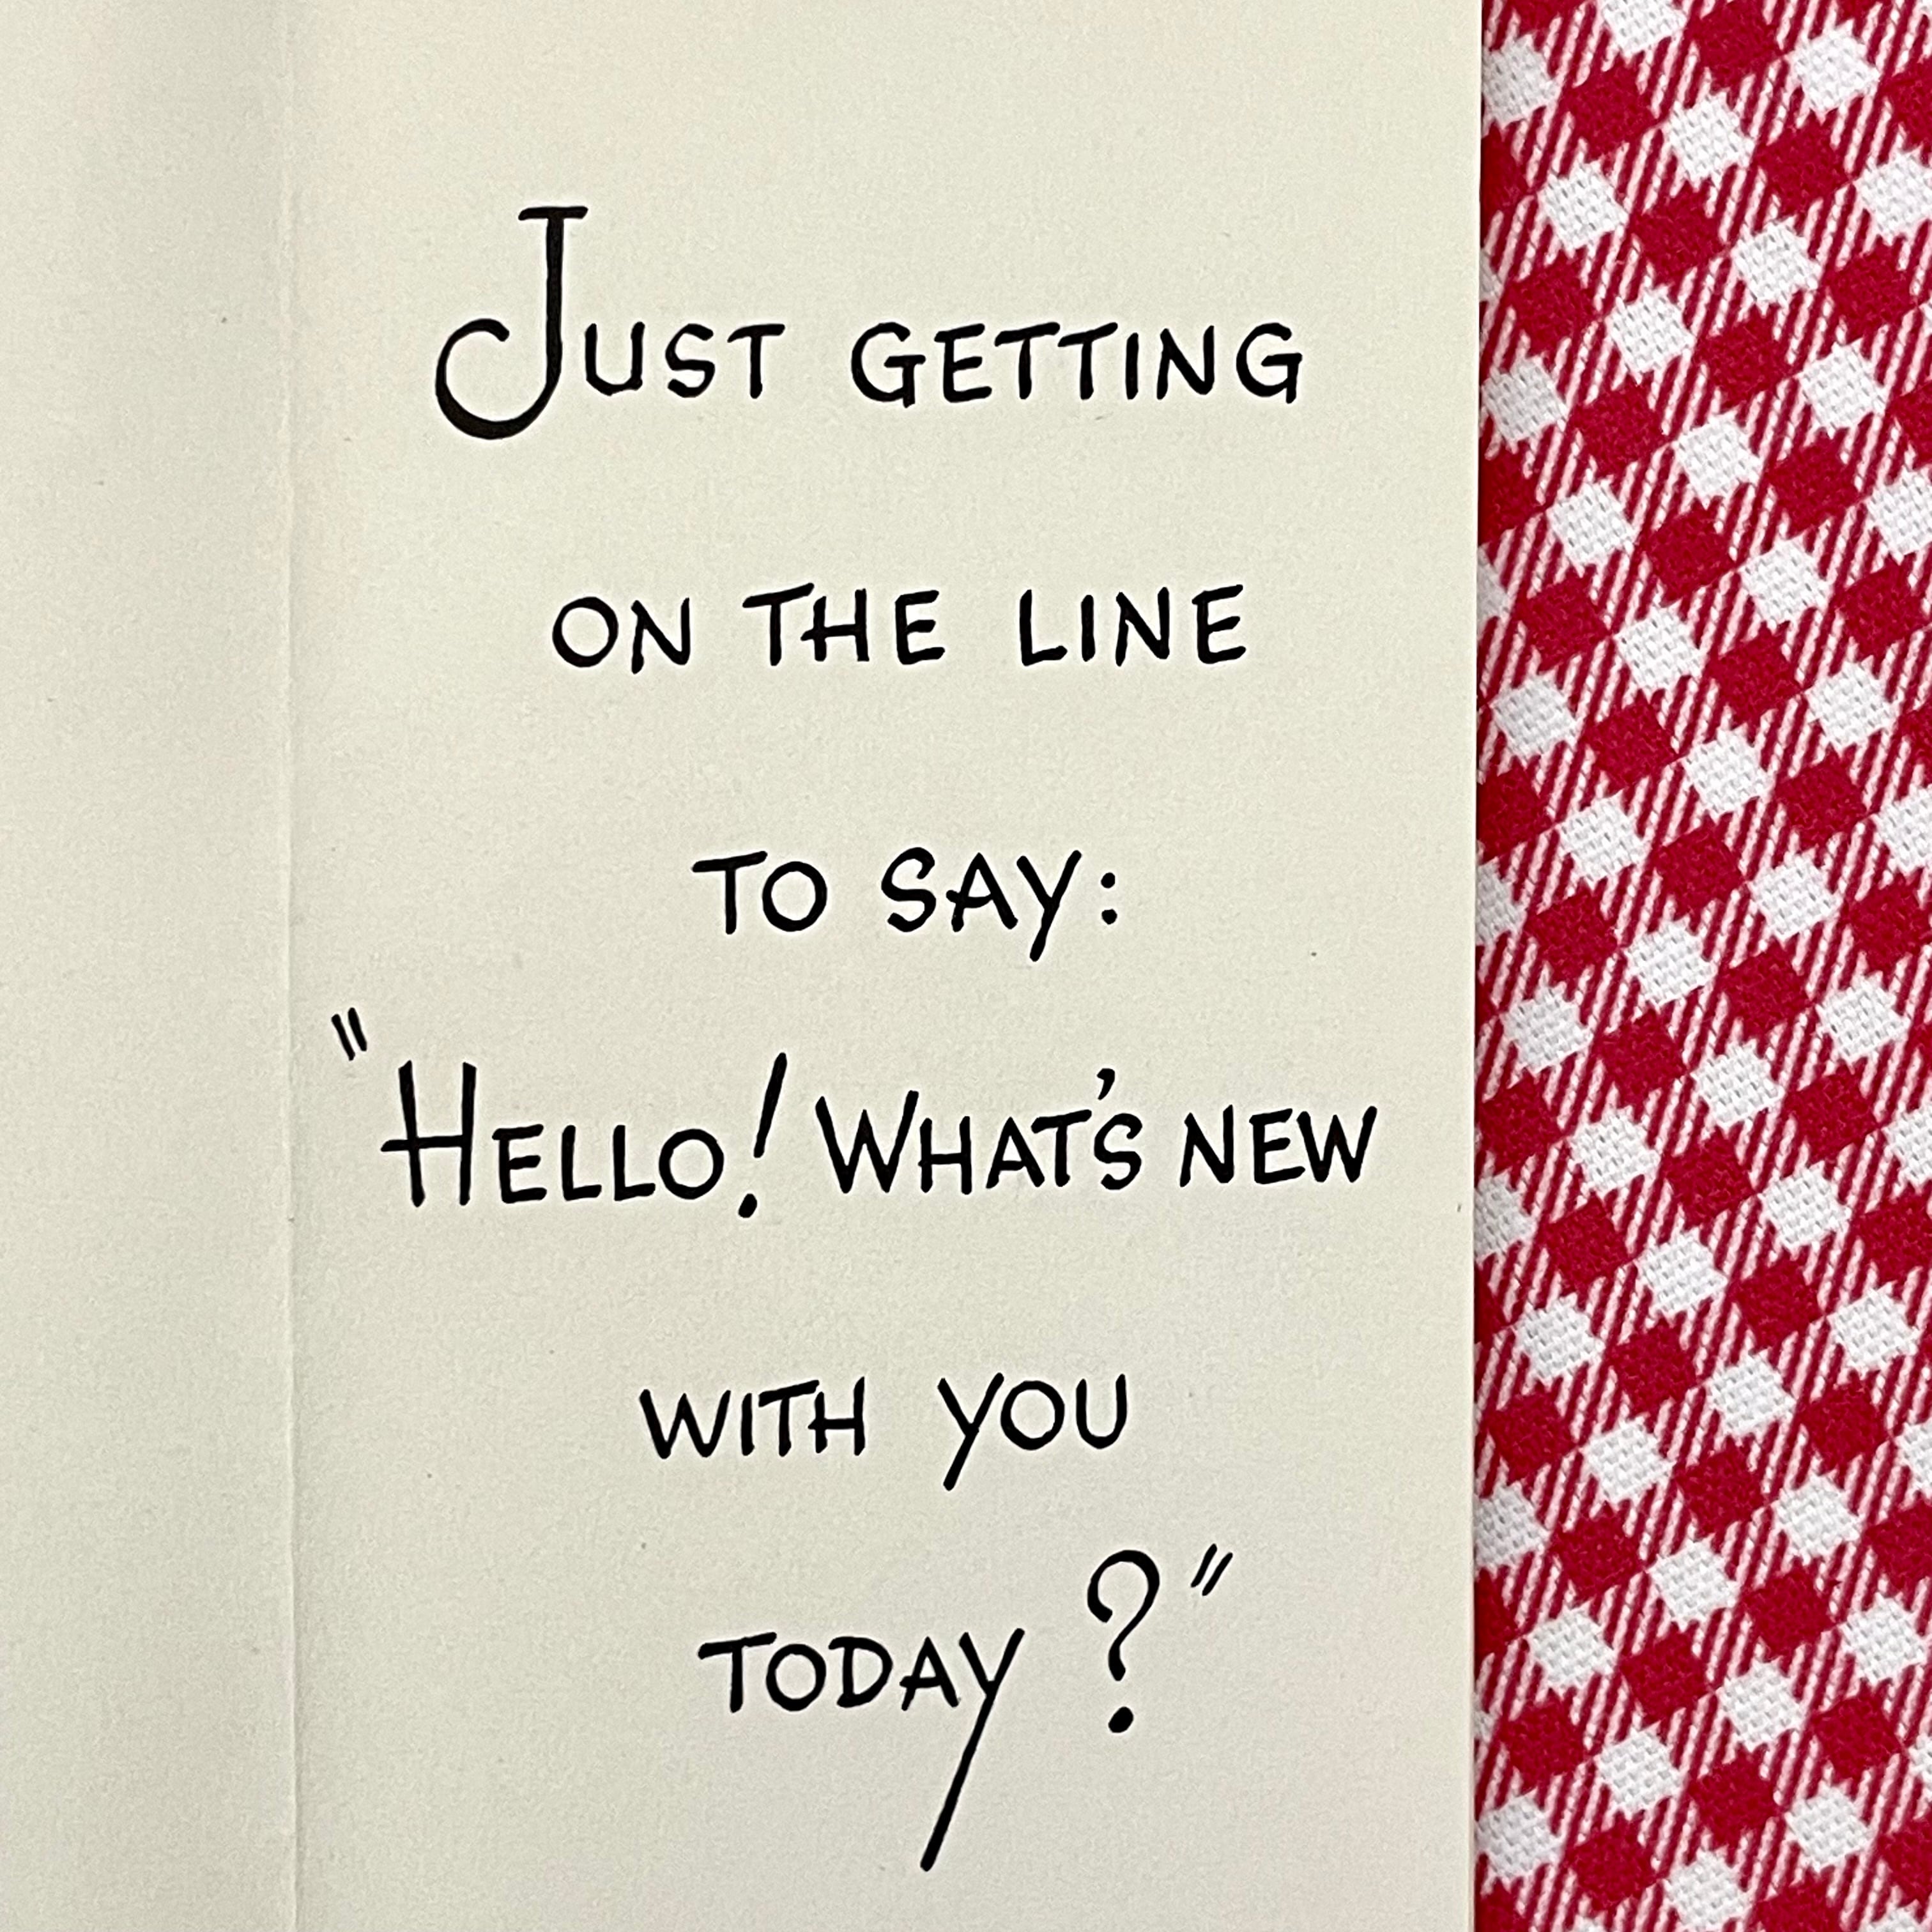 Just getting
on the line
to say:
"Hello! What's new
with you
today?"